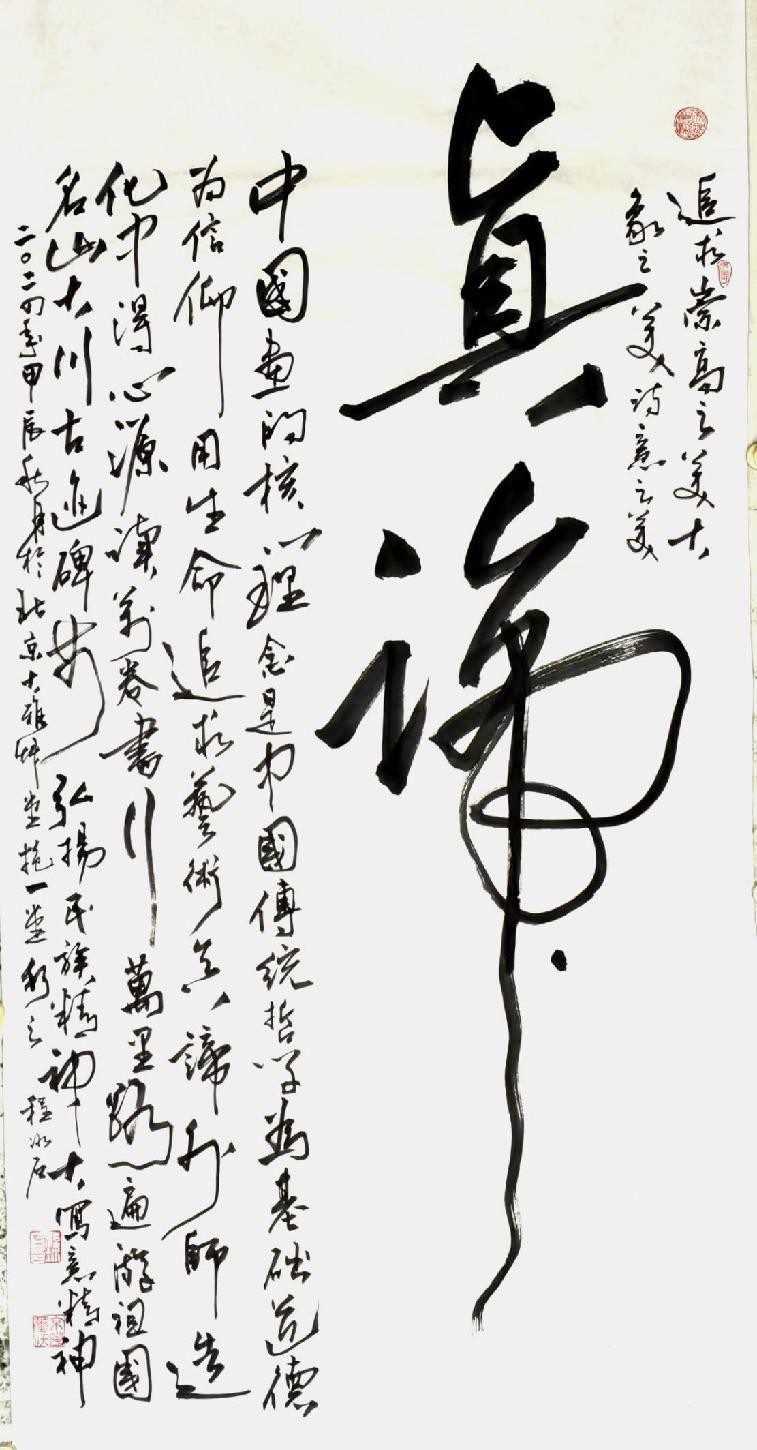 追求崇高之美大
象之美诗意之美
眞諦
中國画的核心理念是中國傳统哲学為基础道德
为信仰用生命追求藝術真諦外師造
化中得心源讀万卷書行萬里路遍游祖國
名山大川古迹碑林弘揚民族精神大寫意精神
二〇二四年甲辰秋月於北京大雅艸堂抱一堂 程冰石